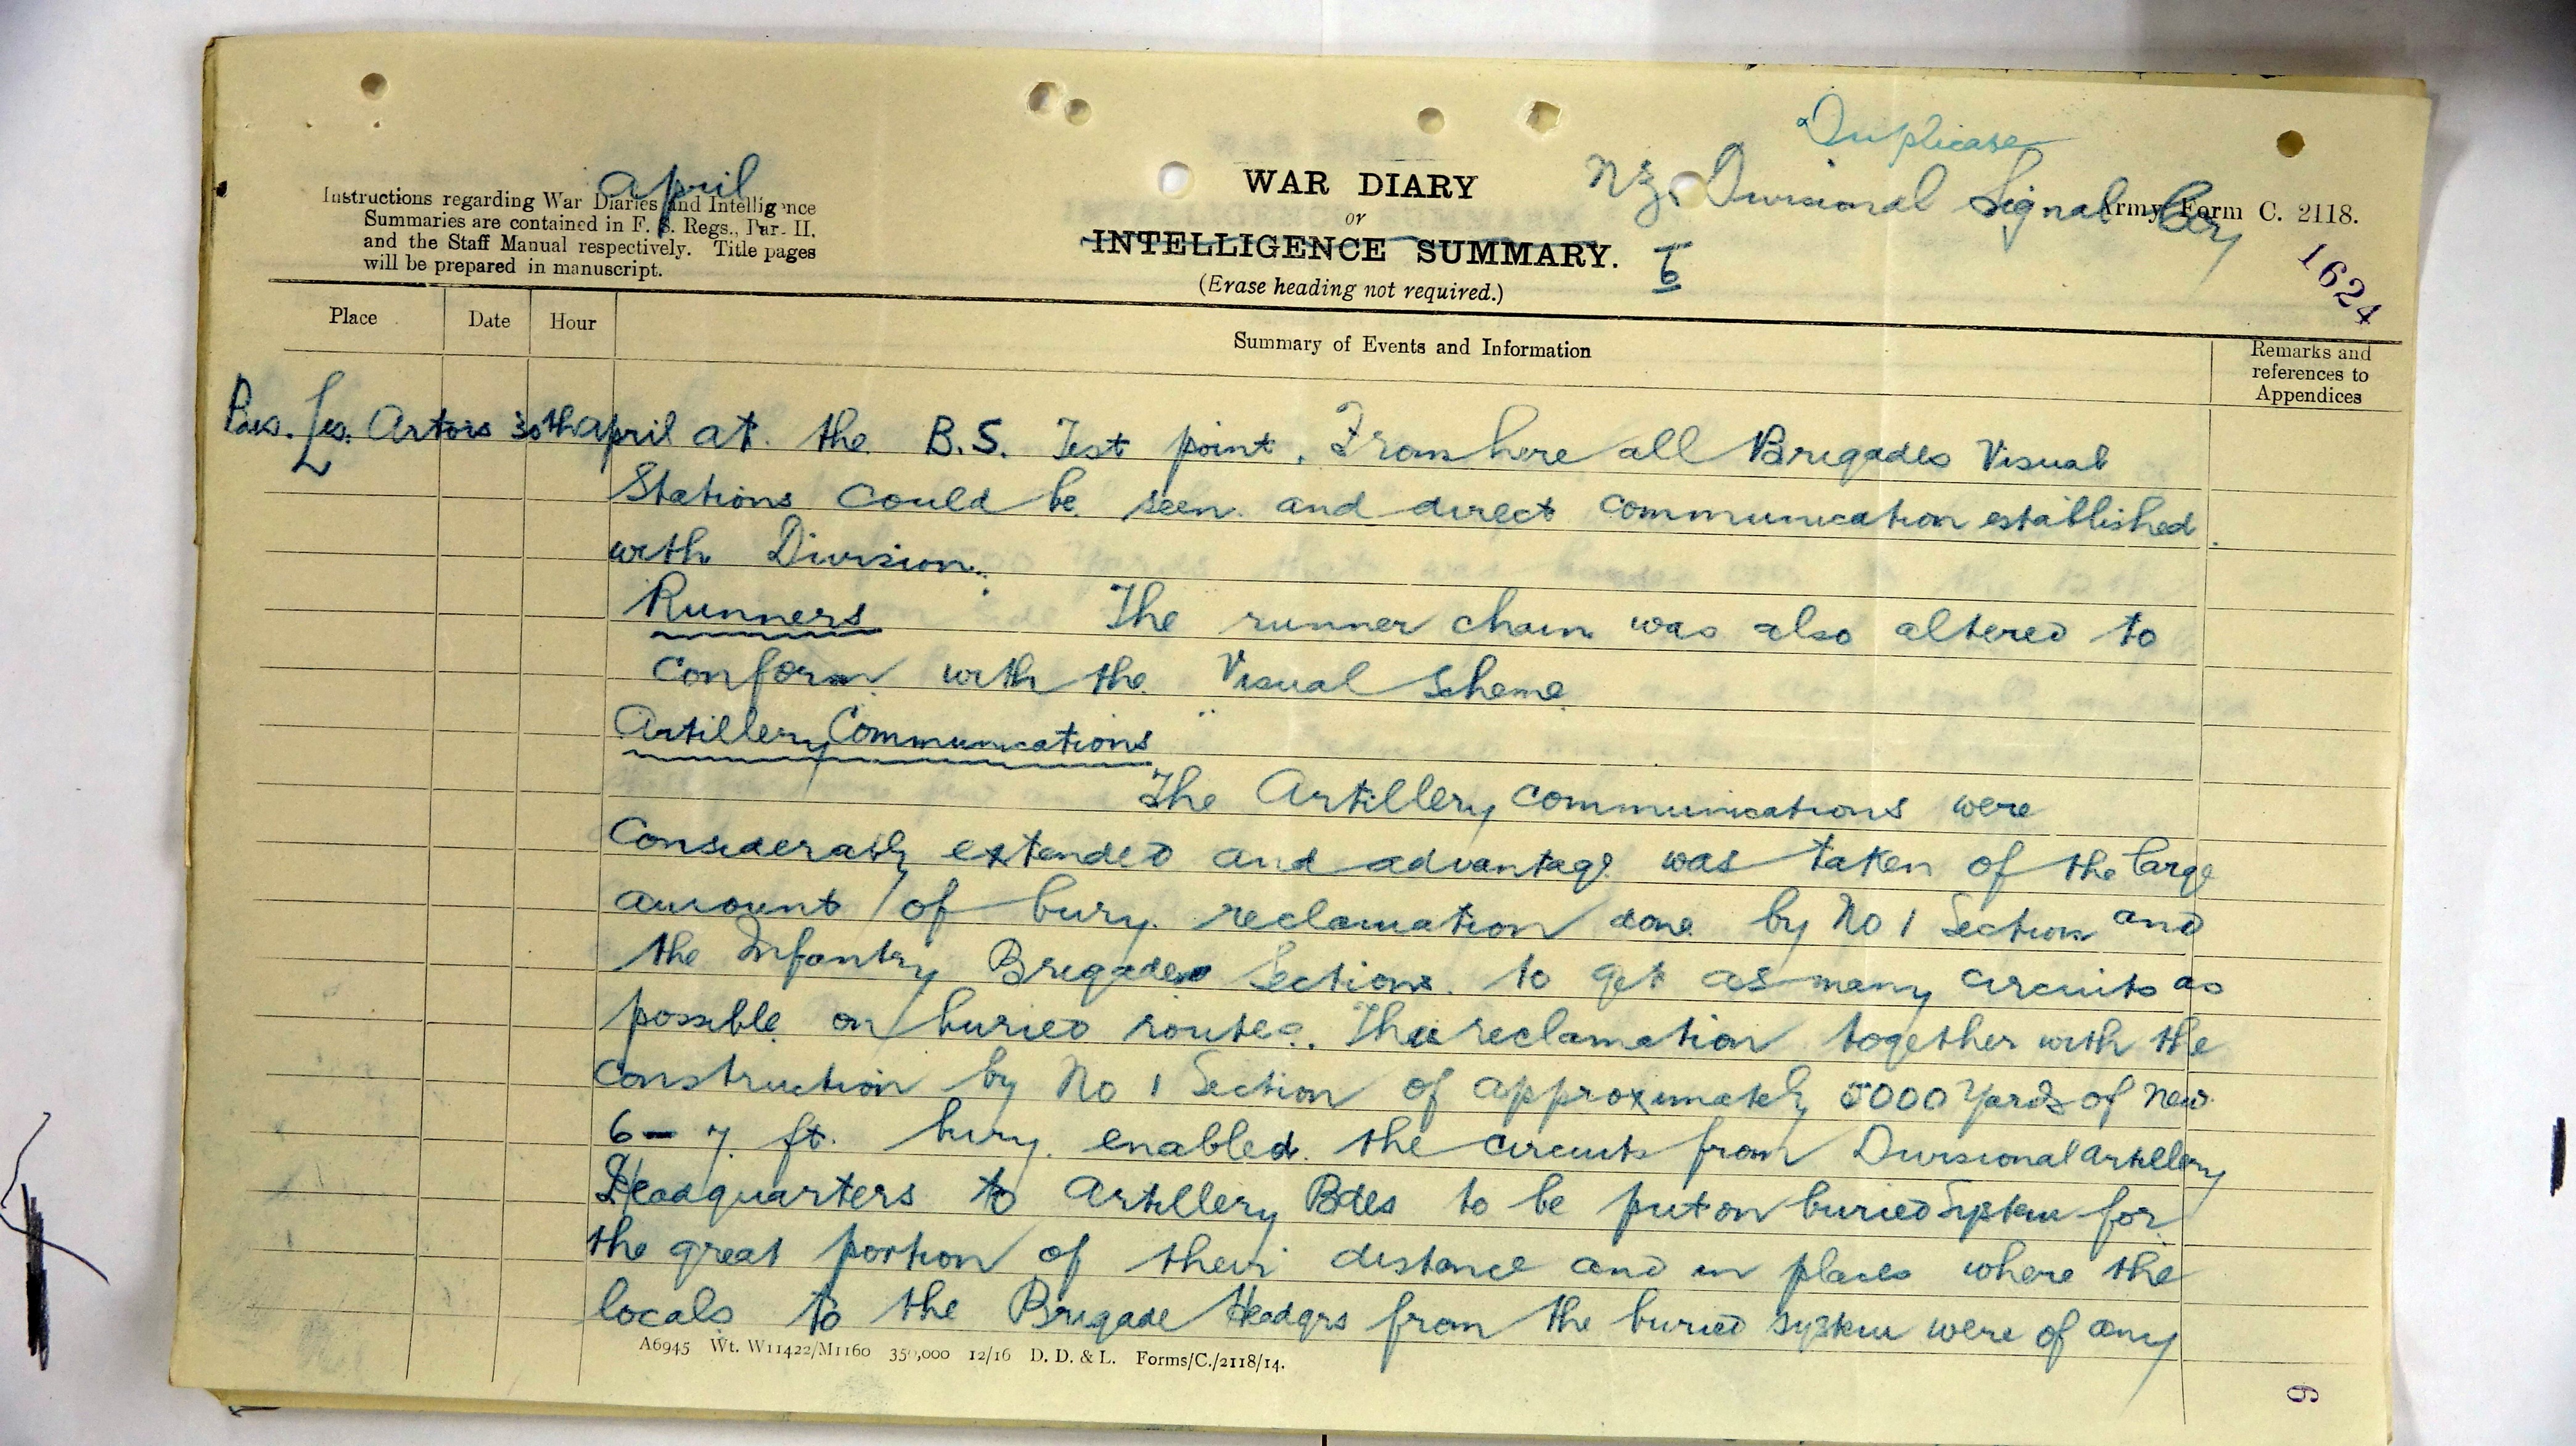 Duplicate
NZ. Divisional Signal Coy
April
Instructions regarding War Diaries and Intelligence
Summaries are contained in F. S. Regs., Part II.
and the Staff Manual respectively. Title pages
will be prepared in manuscript.
WAR DIARY
or
INTELLIGENCE SUMMARY.
(Erase heading not required.)
Army Form C. 2118.
1624
Place Date Hour Summary of Events and Information Remarks and references to Appendices
Pas. Les. Artois 30th April at the B.S. Test point. From here all Brigades Visual
Stations could be seen and direct communication established
with Division.
Runners The runner chain was also altered to
conform with the Visual Scheme.
Artillery Communications
The Artillery communications were
considerably extended and advantage was taken of the large
amount of bury reclamation done by No 1 Section and
the Infantry Brigade Sections to get as many circuits as
possible on buried routes. The reclamation together with the
construction by No 1 Section of approximately 5000 Yards of new
6-7 ft. bury enabled the circuits from Divisional Artillery
Headquarters to Artillery Bdes to be put on buried System for
the great portion of their distance and in places where the
locals to the Brigade Headqrs from the buried system were of any
A6945 Wt. W11422/M1160 350,000 12/16 D. D. & L. Forms/C./2118/14.
9